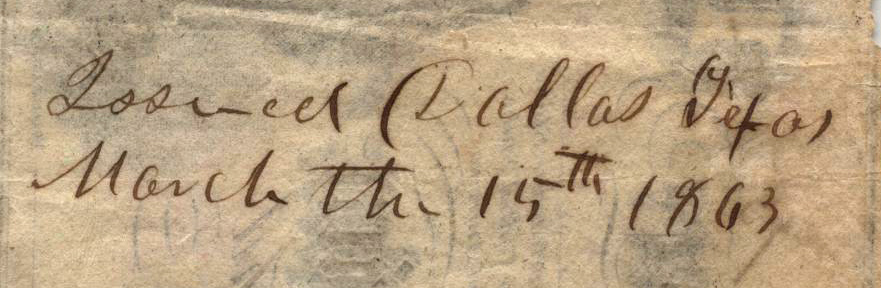 Issued Dallas Texas
March the 15th 1863